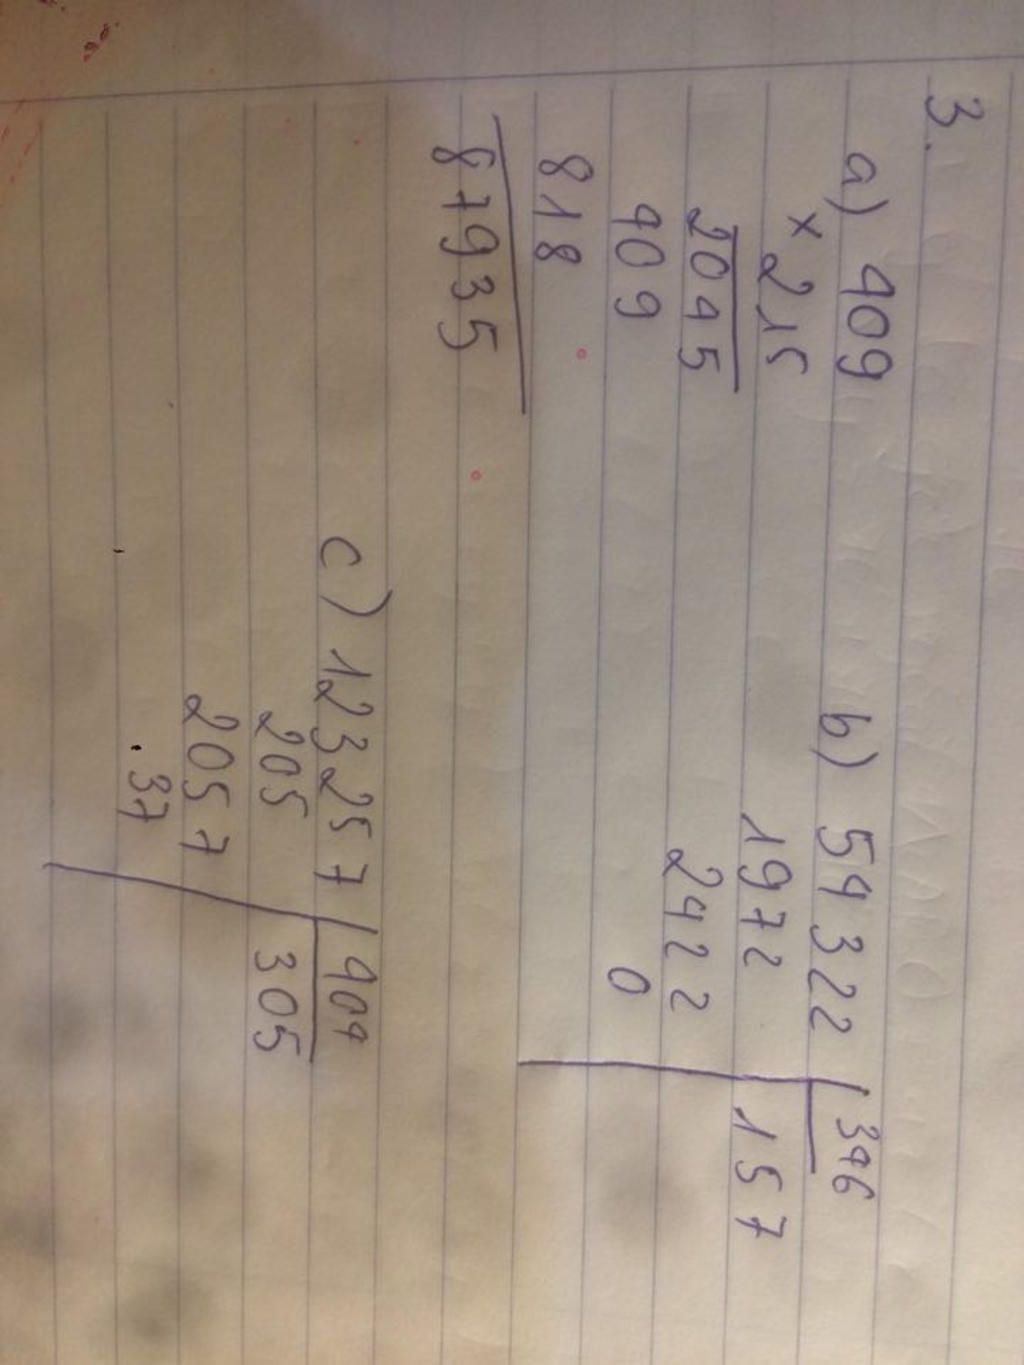 3.
a) 409
× 215
2045
409
818
87935
b) 54322 | 346
1972 157
2422
0
c) 123257 | 404
205 305
2057
37